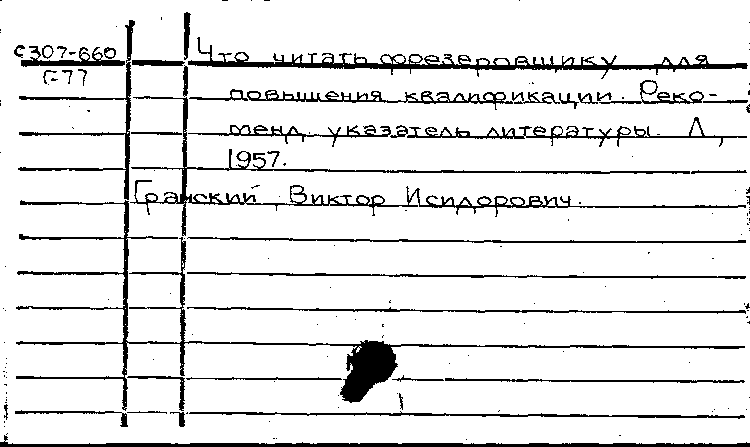 С307-660 Что читать фрезеровщику для
Г-77
повышения квалификации. Реко-
менд. указатель литературы. Л.,
1957.
Гранский, Виктор Исидорович.